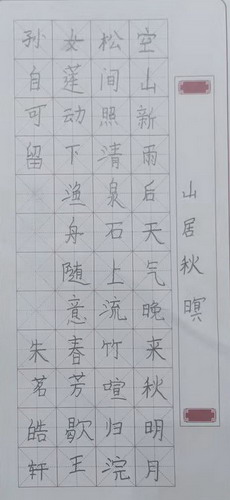 山居秋暝
空山新雨后天气晚来秋明月
松间照清泉石上流竹喧归浣
女莲动下渔舟随意春芳歇王
孙自可留
朱茗皓轩